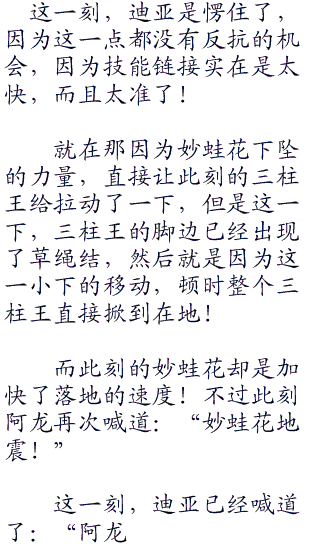 这一刻，迪亚是愣住了，
因为这一点都没有反抗的机
会，因为技能链接实在是太
快，而且太准了！
就在那因为妙蛙花下坠
的力量，直接让此刻的三柱
王给拉动了一下，但是这一
下，三柱王的脚边已经出现
了草绳结，然后就是因为这
一小下的移动，顿时整个三
柱王直接掀到在地！
而此刻的妙蛙花却是加
快了落地的速度！不过此刻
阿龙再次喊道：“妙蛙花地
震！”
这一刻，迪亚已经喊道
了：“阿龙